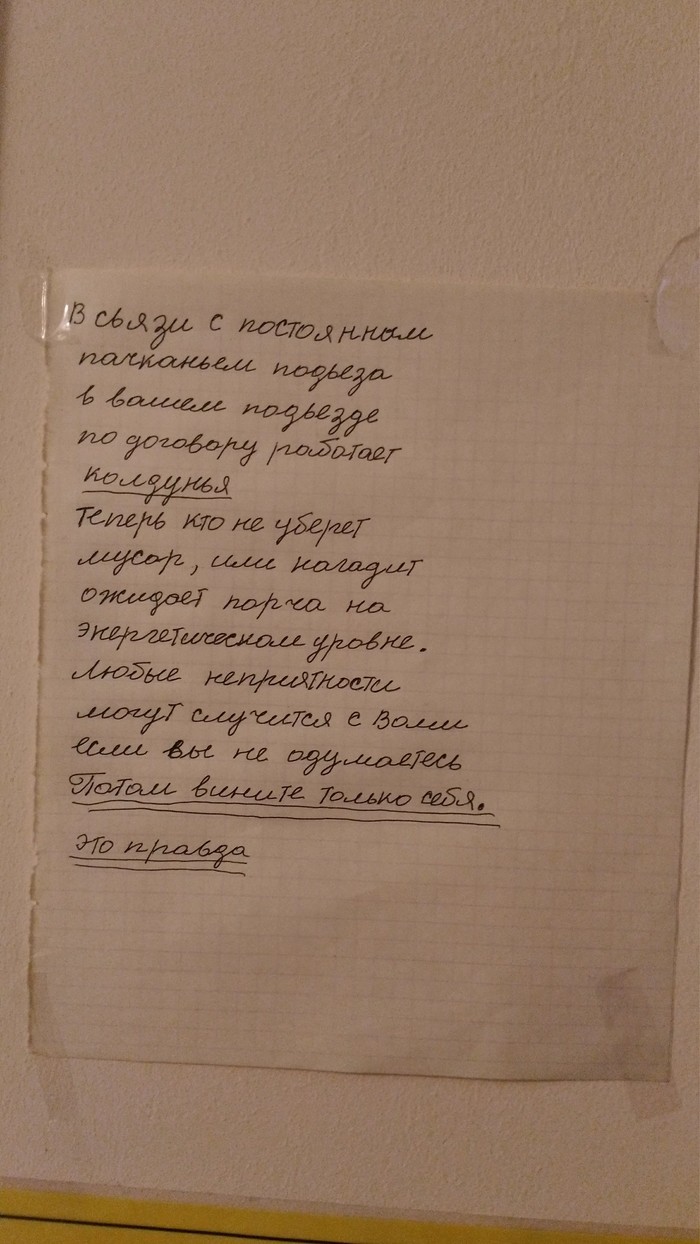 В сьязи с постоянным
пачканьем подьеза
в вашем подьезде
по договору работает
колдунья
Теперь кто не уберет
мусор, или нагадит
ожидает порча на
энергетическом уровне.
Любые неприятности
могут случится с Вами
если вы не одумаетесь
Потом вините только себя.
это правда